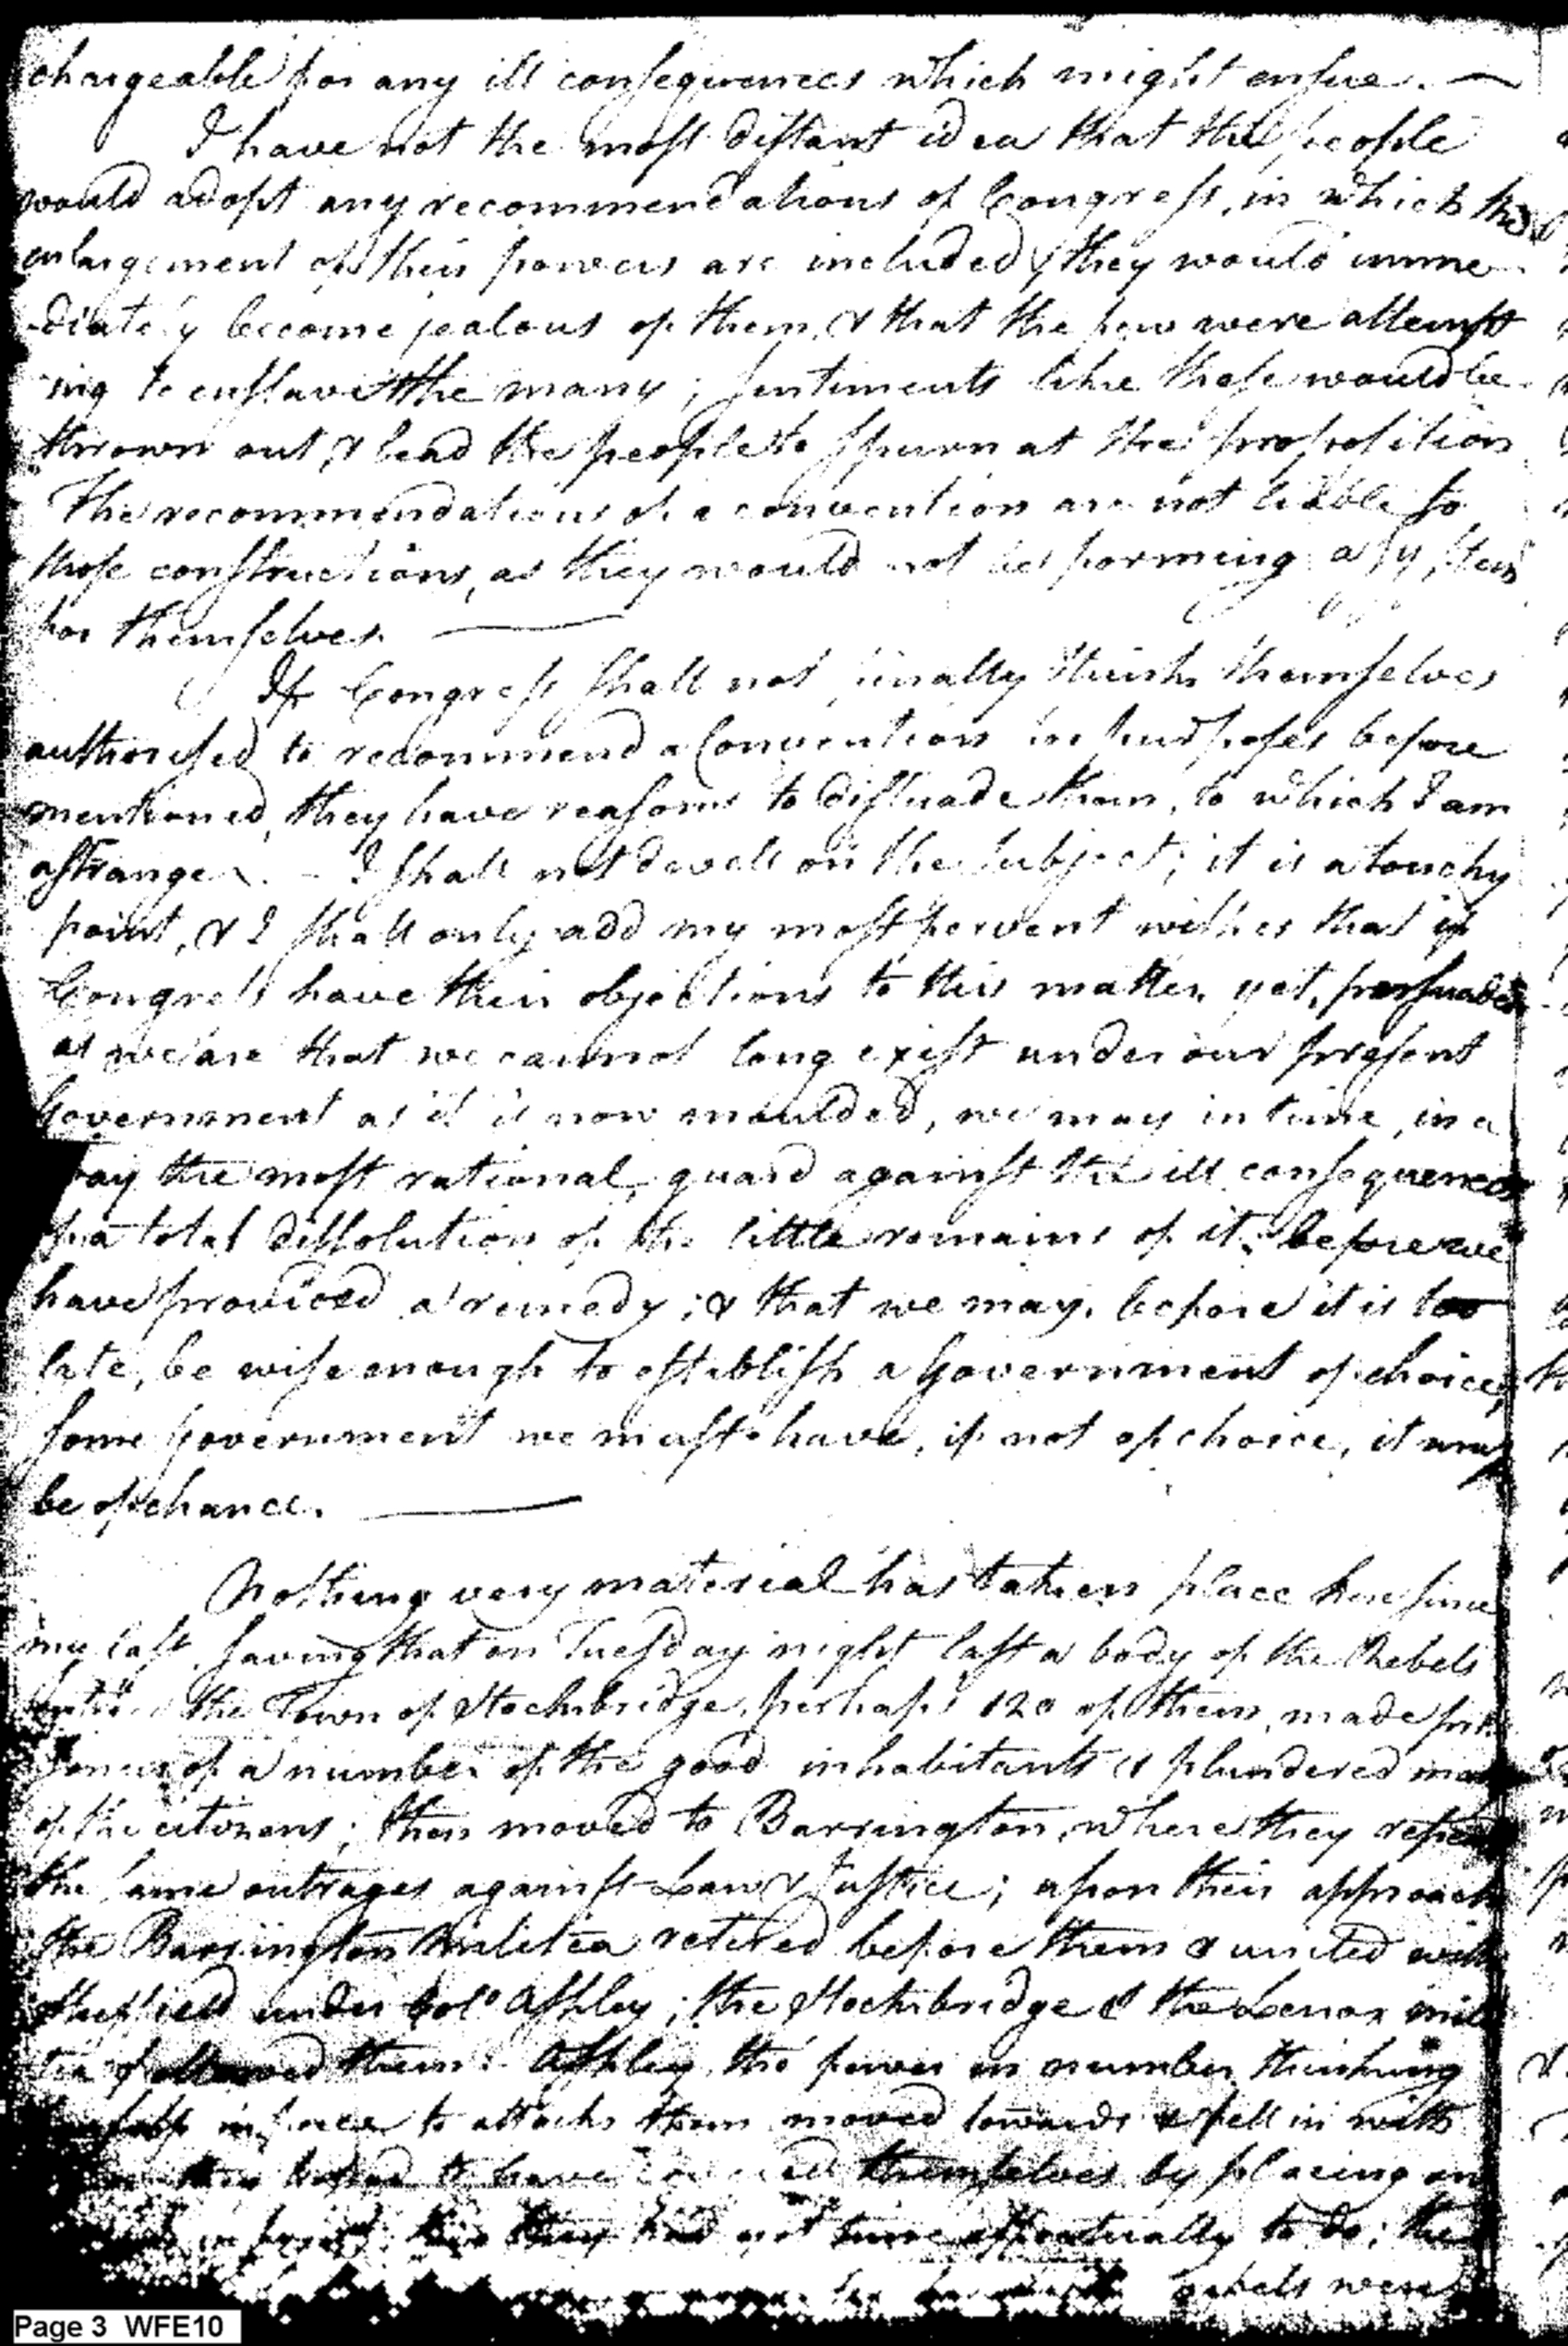 chargeable for any ill consequences which might ensue. —
I have not the most distant idea that the people
would adopt any recommendations of Congress, in which the
enlargement of their powers are included; they would imme
-diately become jealous of them, & that the few were attempt
ing to enslave the many; sentiments like these would be
thrown out & lead the people to spurn at the proposition
The recommendations of a convention are not liable to
those constructions, as they would not be forming a system
for themselves. —
If Congress shall not finally think themselves
authorised to recommend a Convention for purposes before
mentioned, they have reasons to dissuade them, to which I am
a stranger. - I shall not dwell on the subject; it is a touchy
point, & I shall only add my most fervent wishes that if
Congress have their objections to this matter, yet, persuaded
as we are that we cannot long exist under our present
Government as it is now moulded, we may in time, in a
way the most rational, guard against the ill consequences
of a total dissolution of the little remains of it, before we
have provided a remedy; & that we may, before it is too
late, be wise enough to establish a Government of choice,
some government we must have, if not of choice, it may
be of chance. —
Nothing very material has taken place here since
my last, saving that on Tuesday night last a body of the Rebels
entered the Town of Stockbridge, perhaps 120 of them, made pri
soners of a number of the good inhabitants & plundered many
of the citizens; then moved to Barrington, where they
the same outrages against Law & Justice; upon their approach
the Barrington militia retired before them & united with
Sheffield under Colo Ashley; the Stockbridge & the Lenox mili
tia followed them. Ashley, tho' fewer in number, thinking
in force to attack them moved towards & fell in with
to have themselves by placing
this they had not time effectually to do; the
rebels were